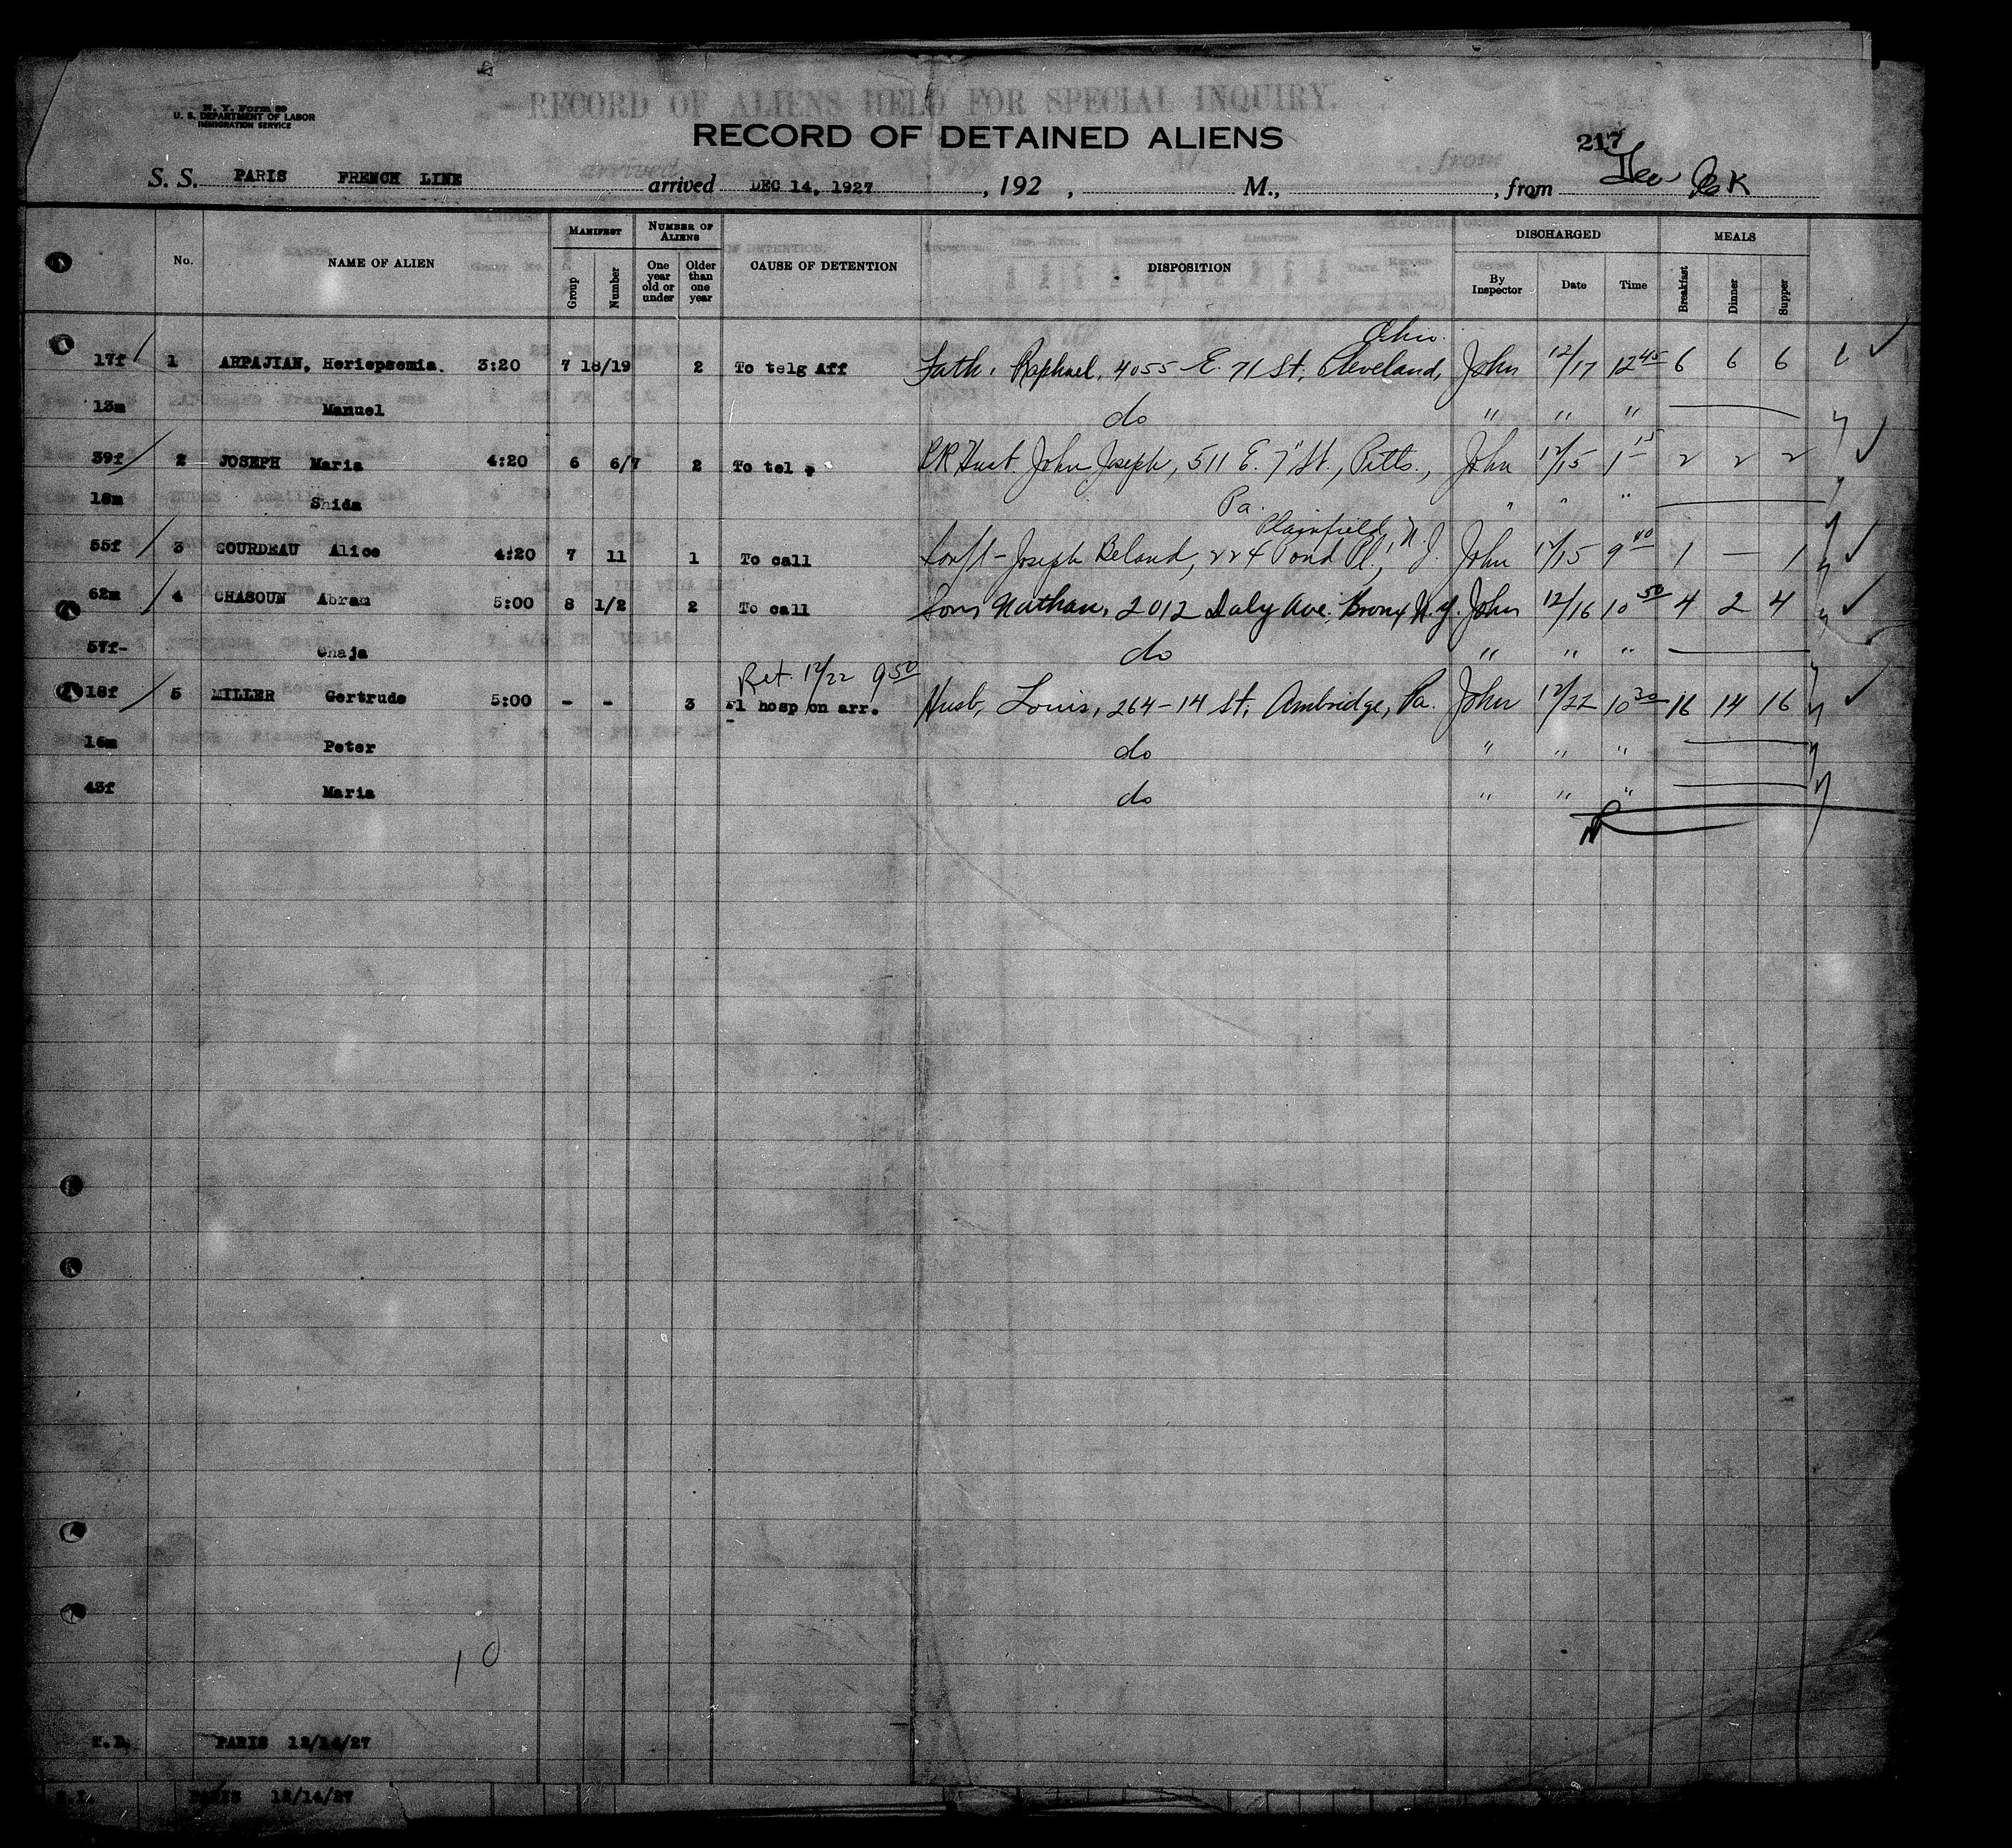 N. Y. Form 89
U. S. DEPARTMENT OF LABOR
IMMIGRATION SERVICE
RECORD OF ALIENS HELD FOR SPECIAL INQUIRY.
RECORD OF DETAINED ALIENS
217
S. S. PARIS FRENCH LINE arrived DEC 14, 1927, 192 , M., , from
No. NAME OF ALIEN MANIFEST Group Number NUMBER OF ALIENS One year old or under Older than one year CAUSE OF DETENTION DISPOSITION DISCHARGED By Inspector Date Time MEALS Breakfast Dinner Supper
Ohio.
17f 1 ARPAJIAN, Heriepsemia. 3:20 7 18/19 2 To telg Aff Fath. Raphael, 4055 E. 71 St, Cleveland, John 12/17 12 45 6 6 6
13m Manuel do " " "
39f 2 JOSEPH Maria 4:20 6 6/7 2 To tel Husb. John Joseph, 511 E. 7" St., Pitts., John 12/15 1 15 2 2 2
18m Shida Pa. " " "
Plainfield, N. J.
55f 3 GOURDEAU Alice 4:20 7 11 1 To call Joseph Beland, 224 Pond Pl., John 12/15 9 40 1 — 1
62m 4 CHASOUN Abram 5:00 8 1/2 2 To call Son Nathan, 2012 Daly Ave. Bronx N.Y. John 12/16 10 50 4 2 4
57f- Chaja do " " "
Ret. 12/22 9 50
18f 5 MILLER Gertrude 5:00 - - 3 1 hosp on arr. Husb, Louis, 264-14 St, Ambridge, Pa. John 12/22 10 30 16 14 16
16m Peter do " " "
43f Maria do " " "
10
PARIS 12/14/27
PARIS 12/14/27